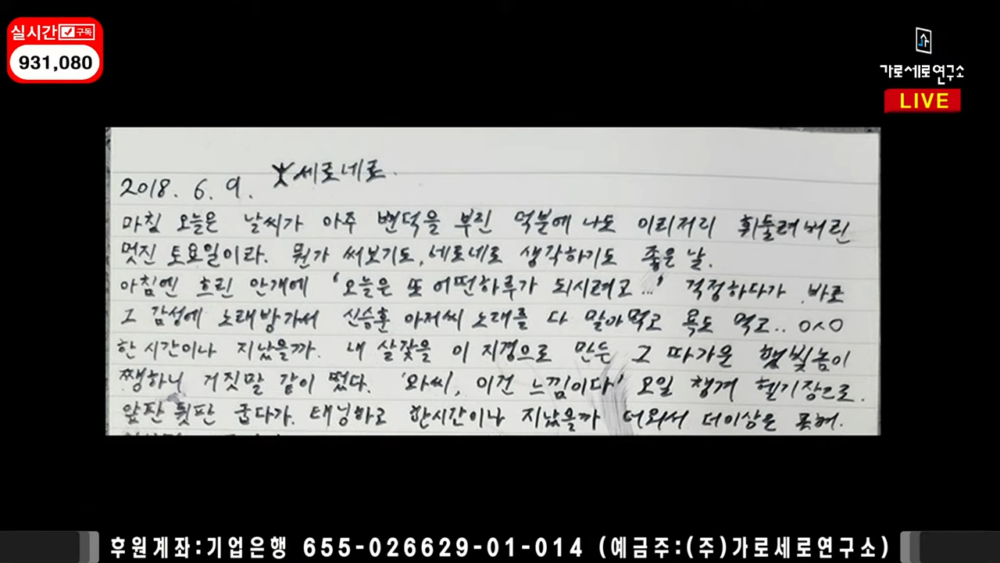 실시간 구독
931,080
가로세로연구소
LIVE
2018. 6. 9. 세로네로.
마침 오늘은 날씨가 아주 변덕을 부린 덕분에 나도 이리저리 휘둘려버린
멋진 토요일이라. 뭔가 써보기도, 네로네로 생각하기도 좋은 날.
아침엔 흐린 안개에 '오늘은 또 어떤하루가 되시려고...' 걱정하다가 바로
그 감성에 노래방가서 신승훈 아저씨 노래를 다 말아먹고 욕도 먹고..
한시간이나 지났을까. 내 살갗을 이 지경으로 만든 그 따가운 햇빛놈이
쨍하니 거짓말 같이 떴다. '와씨, 이건 느낌이다' 오일 챙겨 헬기장으로.
앞판 뒷판 굽다가. 태닝하고 한시간이나 지났을까 더워서 더이상은 못해.
후원계좌:기업은행 655-026629-01-014 (예금주:(주)가로세로연구소)